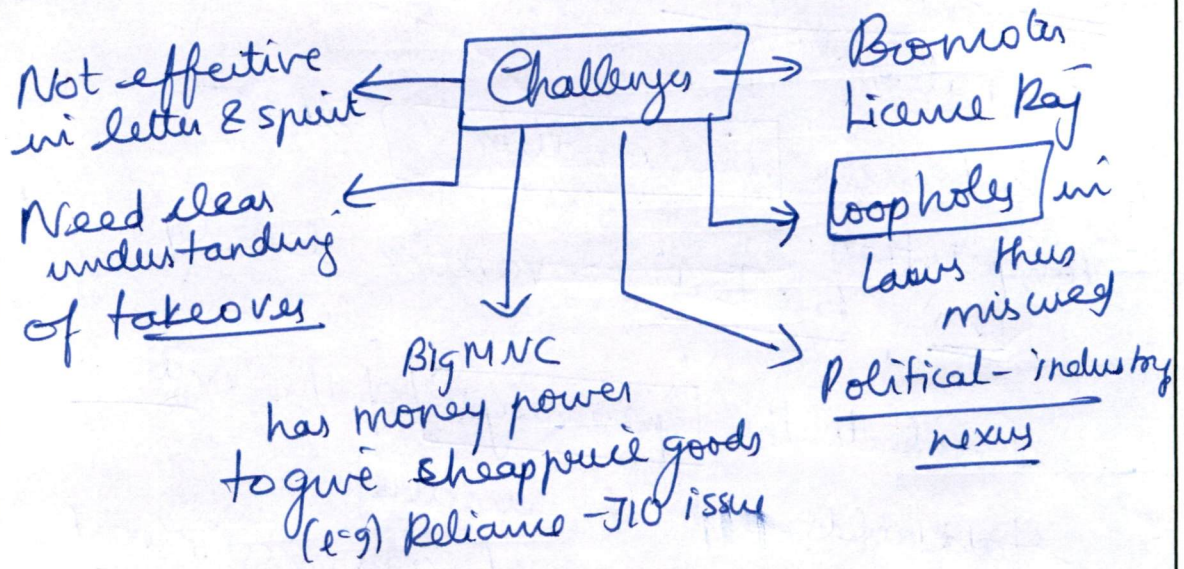 Challenges
Not effective
in letter & spirit
Need clear
understanding
of takeovers
Big MNC
has money power
to give cheap price goods
(e-g) Reliance - JIO issue
Political - industry
nexus
loopholes in
laws thus
misused
Promotes
Licence Raj